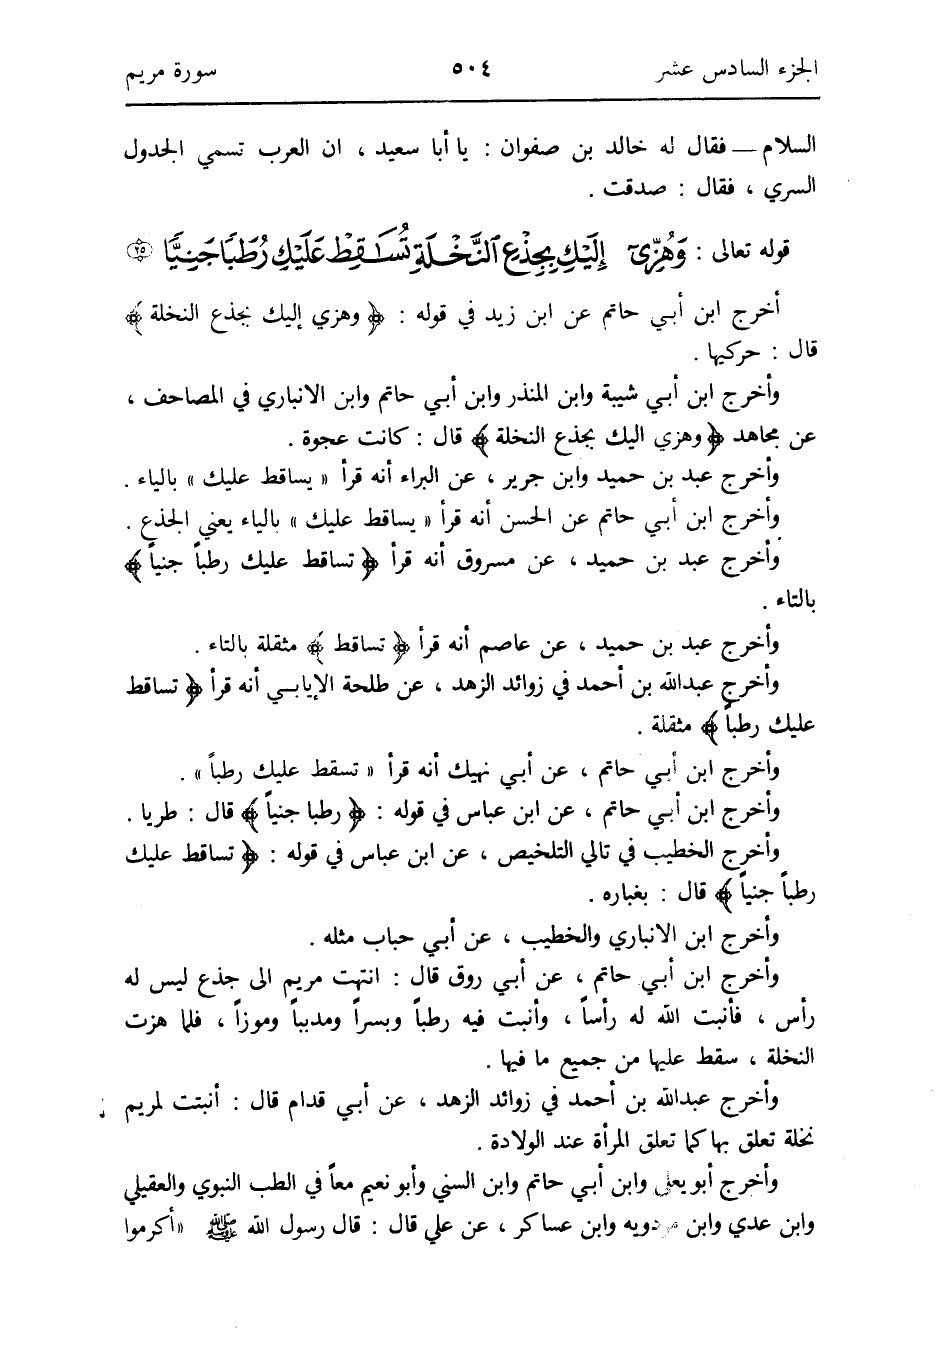 الجزء السادس عشر ٥٠٤ سورة مريم
السلام ــ فقال له خالد بن صفوان : يا أبا سعيد ، ان العرب تسمي الجدول
السري ، فقال : صدقت .
قوله تعالى : وَهُزِّىٓ إِلَيْكِ بِجِذْعِ ٱلنَّخْلَةِ تُسَٰقِطْ عَلَيْكِ رُطَبًا جَنِيًّا ﴿٢٥﴾
أخرج ابن أبي حاتم عن ابن زيد في قوله : ﴿ وهزي إليك بجذع النخلة ﴾
قال : حركيها .
وأخرج ابن أبي شيبة وابن المنذر وابن أبي حاتم وابن الانباري في المصاحف ،
عن مجاهد ﴿ وهزي اليك بجذع النخلة ﴾ قال : كانت عجوة .
وأخرج عبد بن حميد وابن جرير ، عن البراء أنه قرأ « يساقط عليك » بالياء .
وأخرج ابن أبي حاتم عن الحسن أنه قرأ « يساقط عليك » بالياء يعني الجذع .
وأخرج عبد بن حميد ، عن مسروق أنه قرأ ﴿ تساقط عليك رطباً جنياً ﴾
بالتاء .
وأخرج عبد بن حميد ، عن عاصم أنه قرأ ﴿ تساقط ﴾ مثقلة بالتاء .
وأخرج عبدالله بن أحمد في زوائد الزهد ، عن طلحة الإيابي أنه قرأ ﴿ تساقط
عليك رطباً ﴾ مثقلة .
وأخرج ابن أبي حاتم ، عن أبي نهيك أنه قرأ « تسقط عليك رطباً » .
وأخرج ابن أبي حاتم ، عن ابن عباس في قوله : ﴿ رطبا جنياً ﴾ قال : طريا .
وأخرج الخطيب في تالي التلخيص ، عن ابن عباس في قوله : ﴿ تساقط عليك
رطباً جنياً ﴾ قال : بغباره .
وأخرج ابن الانباري والخطيب ، عن أبي حباب مثله .
وأخرج ابن أبي حاتم ، عن أبي روق قال : انتهت مريم الى جذع ليس له
رأس ، فأنبت الله له رأساً ، وأنبت فيه رطباً وبسراً ومدبباً وموزاً ، فلما هزت
النخلة ، سقط عليها من جميع ما فيها .
وأخرج عبدالله بن أحمد في زوائد الزهد ، عن أبي قدام قال : أنبتت لمريم
نخلة تعلق بها كما تعلق المرأة عند الولادة .
وأخرج أبو يعلى وابن أبي حاتم وابن السني وأبو نعيم معاً في الطب النبوي والعقيلي
وابن عدي وابن مردويه وابن عساكر ، عن علي قال : قال رسول الله ﷺ «أكرموا